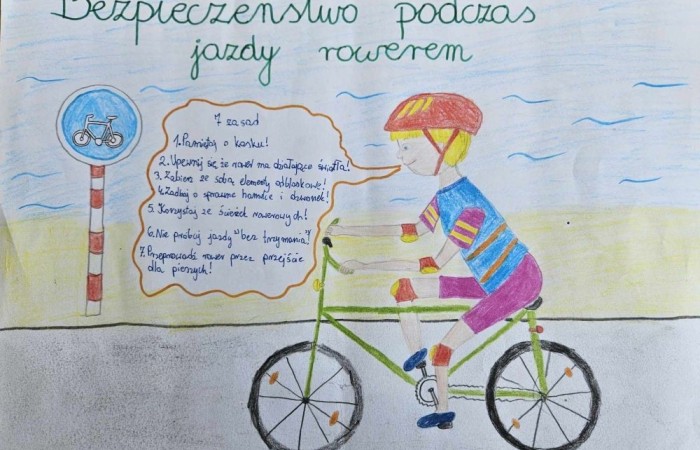 Bezpieczeństwo podczas
jazdy rowerem
7 zasad
1. Pamiętaj o kasku!
2. Upewnij się, że rower ma działające światła!
3. Zabierz ze sobą elementy odblaskowe!
4. Zadbaj o sprawne hamulce i dzwonek!
5. Korzystaj ze ścieżek rowerowych!
6. Nie próbuj jazdy "bez trzymania"!
7. Przeprowadź rower przez przejście
dla pieszych!